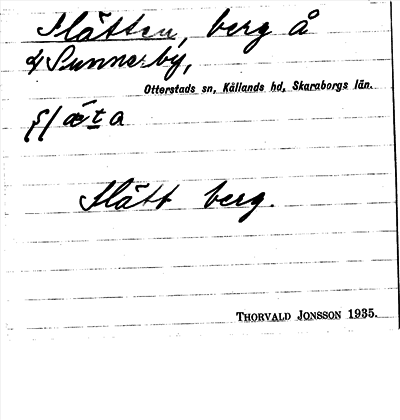 Slätten, berg å
4 Sunnerby,
Otterstads sn, Kållands hd, Skaraborgs län.
Slätt berg.
THORVALD JONSSON 1935.